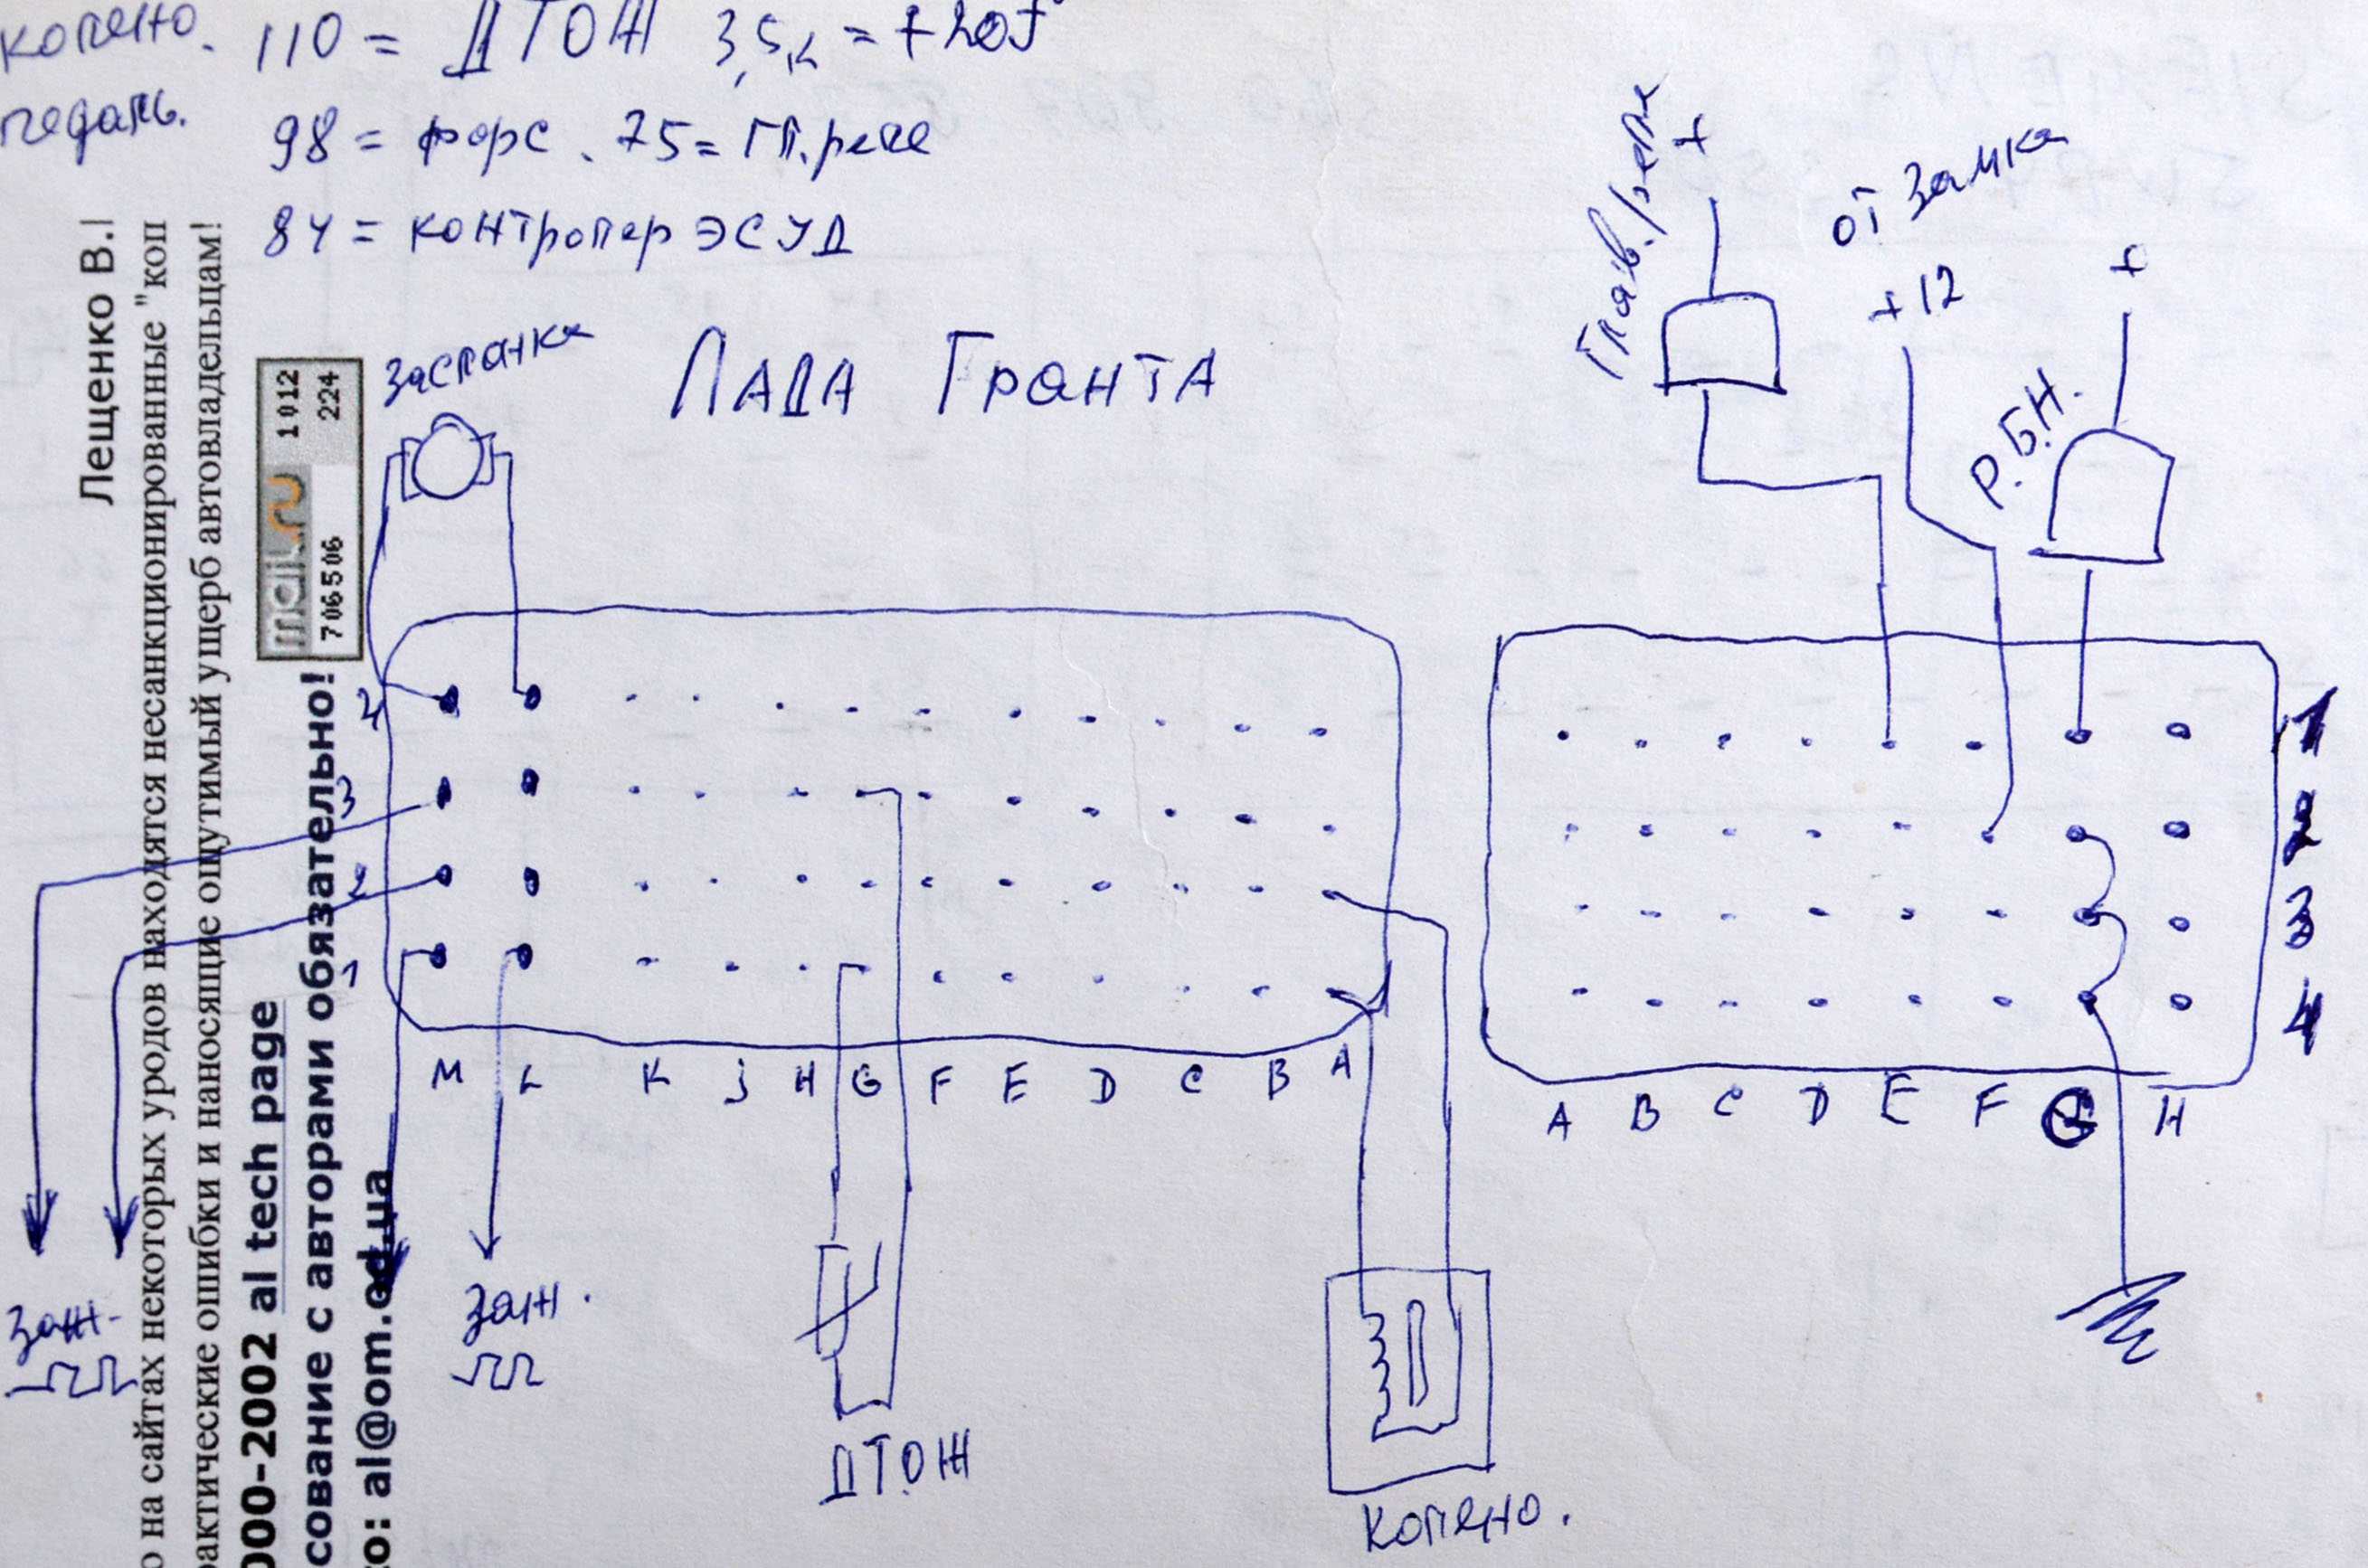 колено. 110 = ДТОЖ 3,5к = +20
педаль. 98 = форс. 75 = гл.реле
84 = контролер ЭСУД
Лада Гранта
заслонка
Глав.реле
+
от замка
+12
Р.Б.Н.
+
4
3
2
1
M L K J H G F E D C B A
1
2
3
4
A B C D E F G H
Заж.
Заж.
ДТОЖ
колено.
Лещенко В.
о на сайтах некоторых уродов находятся несанкционированные "коп
рактические ошибки и наносящие ощутимый ущерб автовладельцам!
000-2002 al tech page
сование с авторами обязательно!
со: al@om.od.ua
mail.ru
1012
224
706506